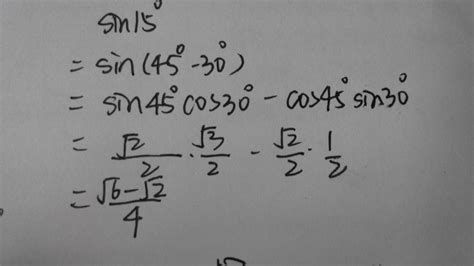 sin15°
= sin(45°-30°)
= sin45°cos30° - cos45°sin30°
= √2/2 · √3/2 - √2/2 · 1/2
= √6-√2/4